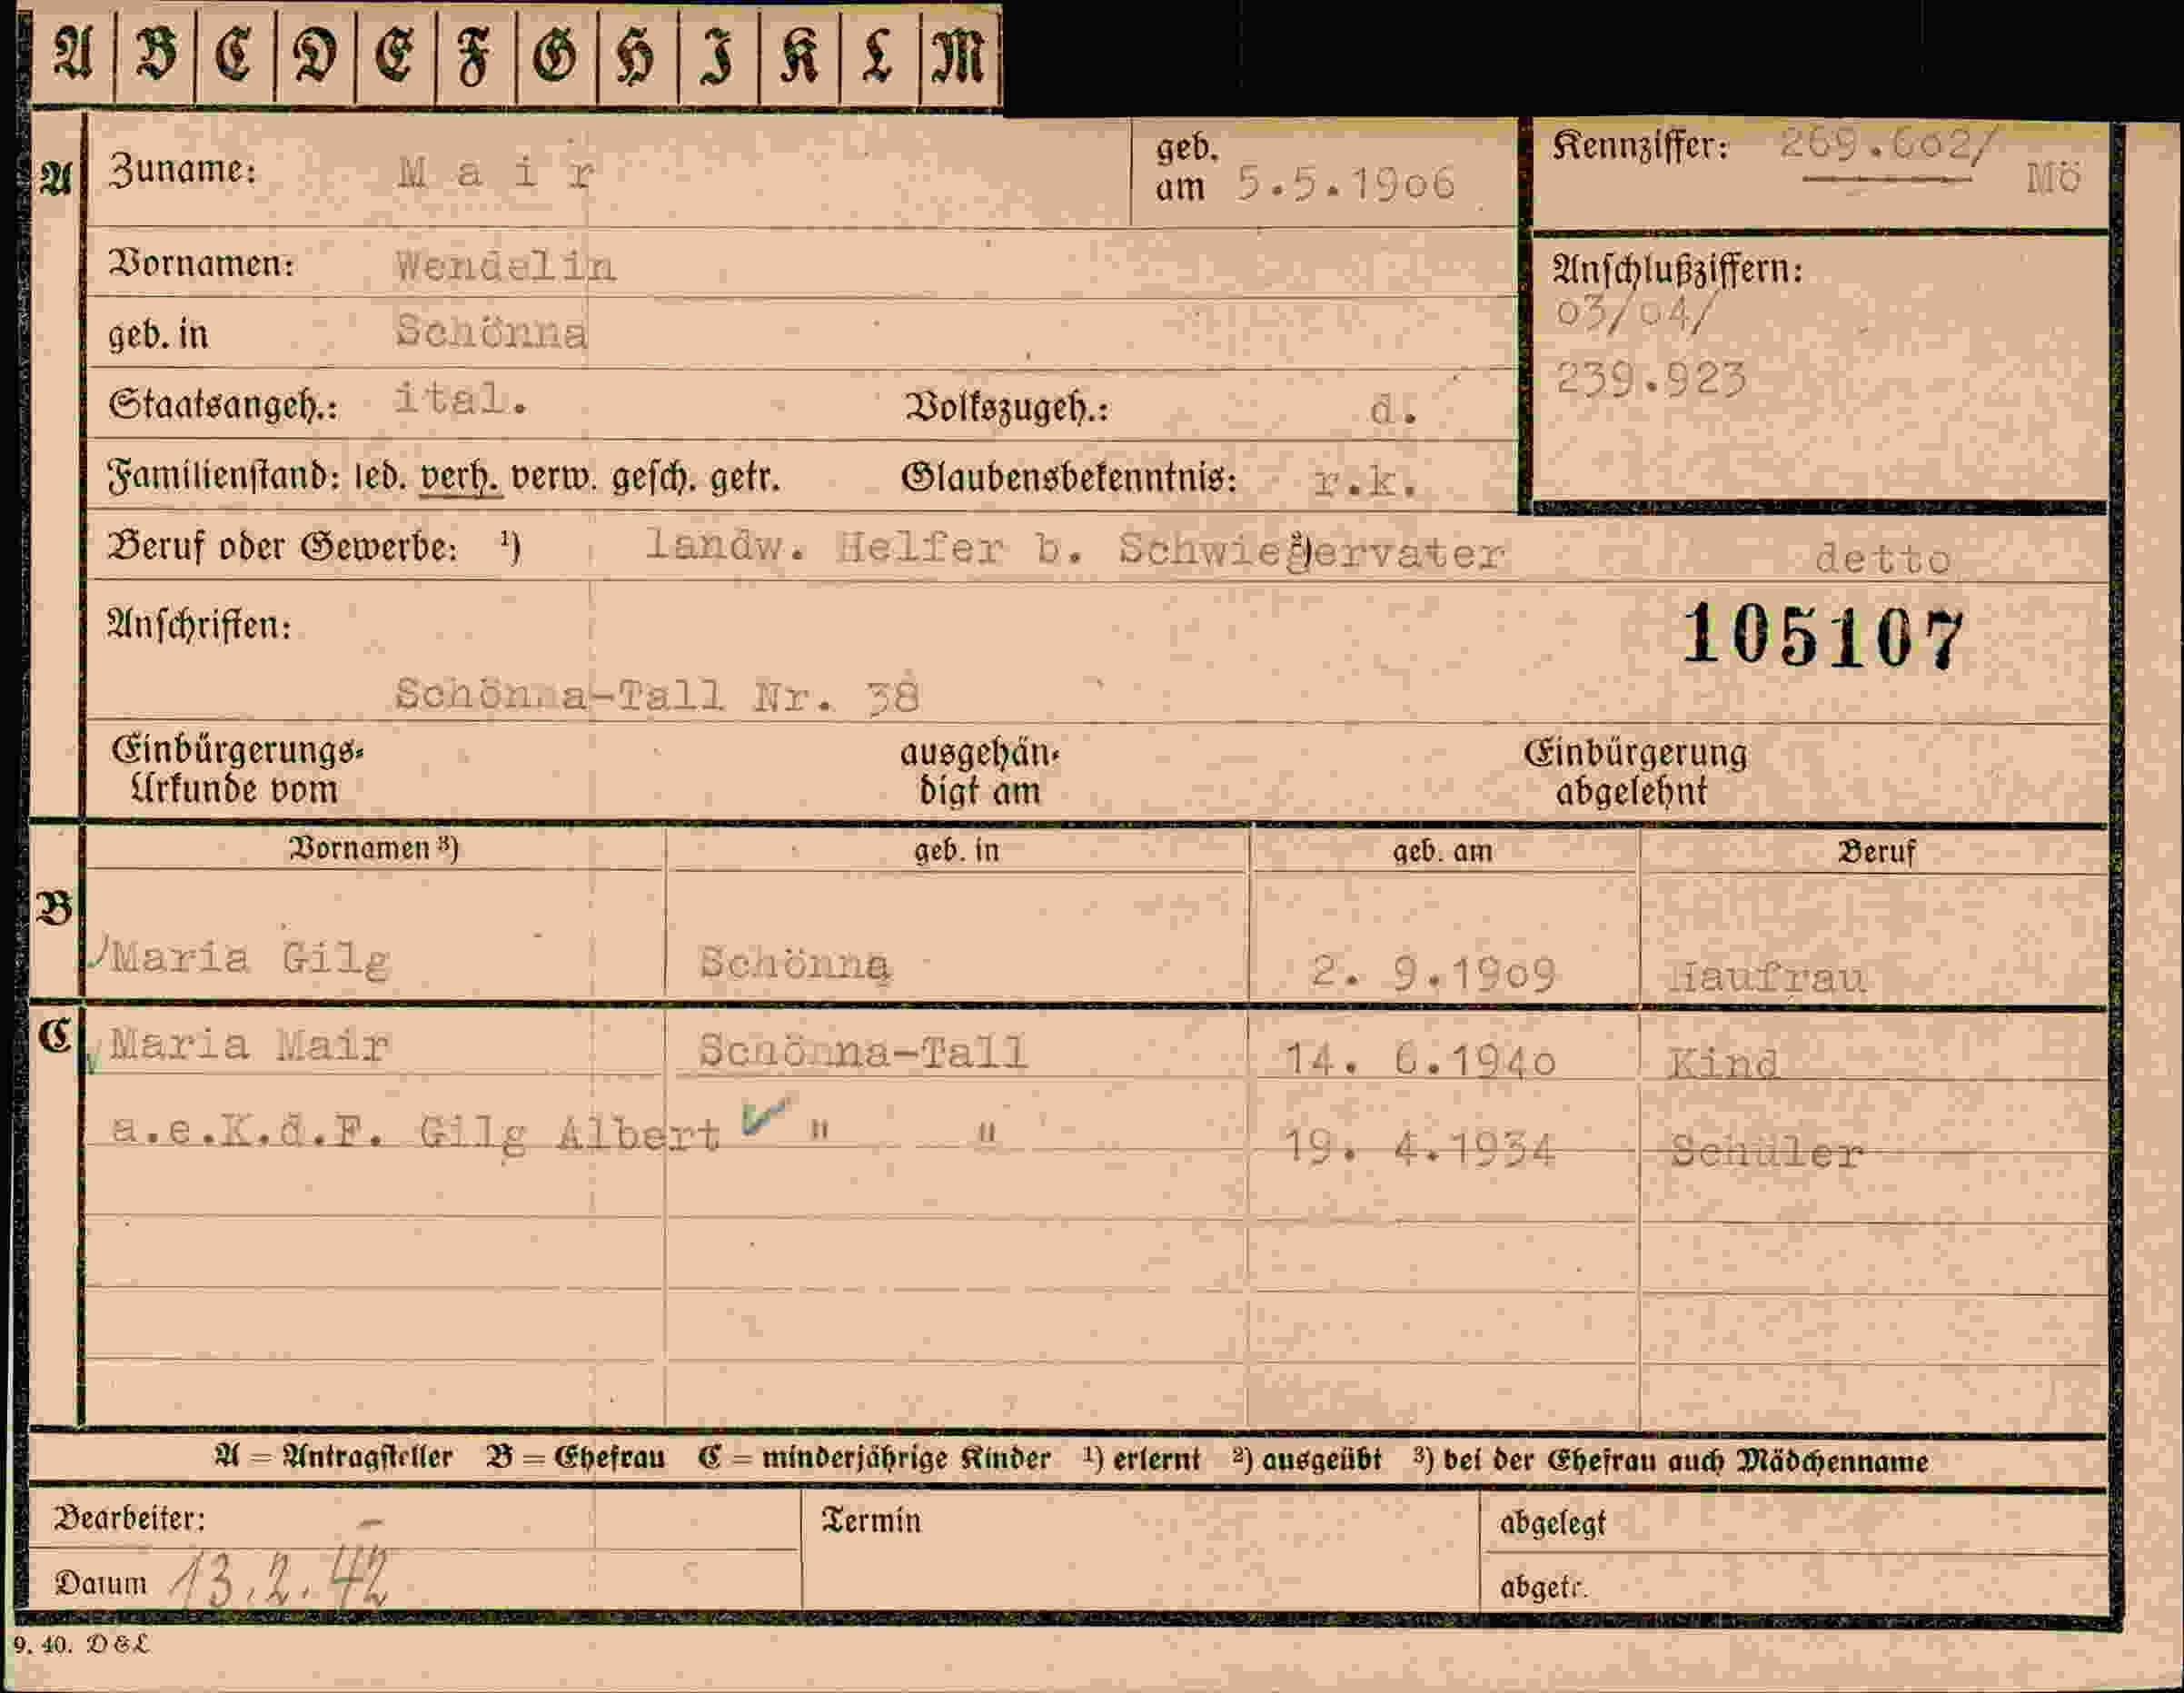 A B C D E F G H I K L M
A Zuname: Mair geb. am 5.5.1906 Kennziffer: 269.602/ Mö
Vornamen: Wendelin
Anschlußziffern:
03/04/
239.923
geb. in Schönna
Staatsangeh.: ital. Volkszugeh.: d.
Familienstand: led. verh. verw. gesch. getr. Glaubensbekenntnis: r.k.
Beruf oder Gewerbe: ¹) landw. Helfer b. Schwiegervater ²) detto
Anschriften: 105107
Schönna-Tall Nr. 38
Einbürgerungs- ausgehän- Einbürgerung
Urkunde vom digt am abgelehnt
Vornamen ³) geb. in geb. am Beruf
B
Maria Gilg Schönna 2. 9.1909 Haufrau
C Maria Mair Schönna-Tall 14. 6.1940 Kind
a.e.K.d.F. Gilg Albert " " 19. 4.1934 Schüler
A = Antragsteller B = Ehefrau C = minderjährige Kinder ¹) erlernt ²) ausgeübt ³) bei der Ehefrau auch Mädchenname
Bearbeiter: Termin abgelegt
Datum 13.2.42 abgetr.
9. 40. D & L